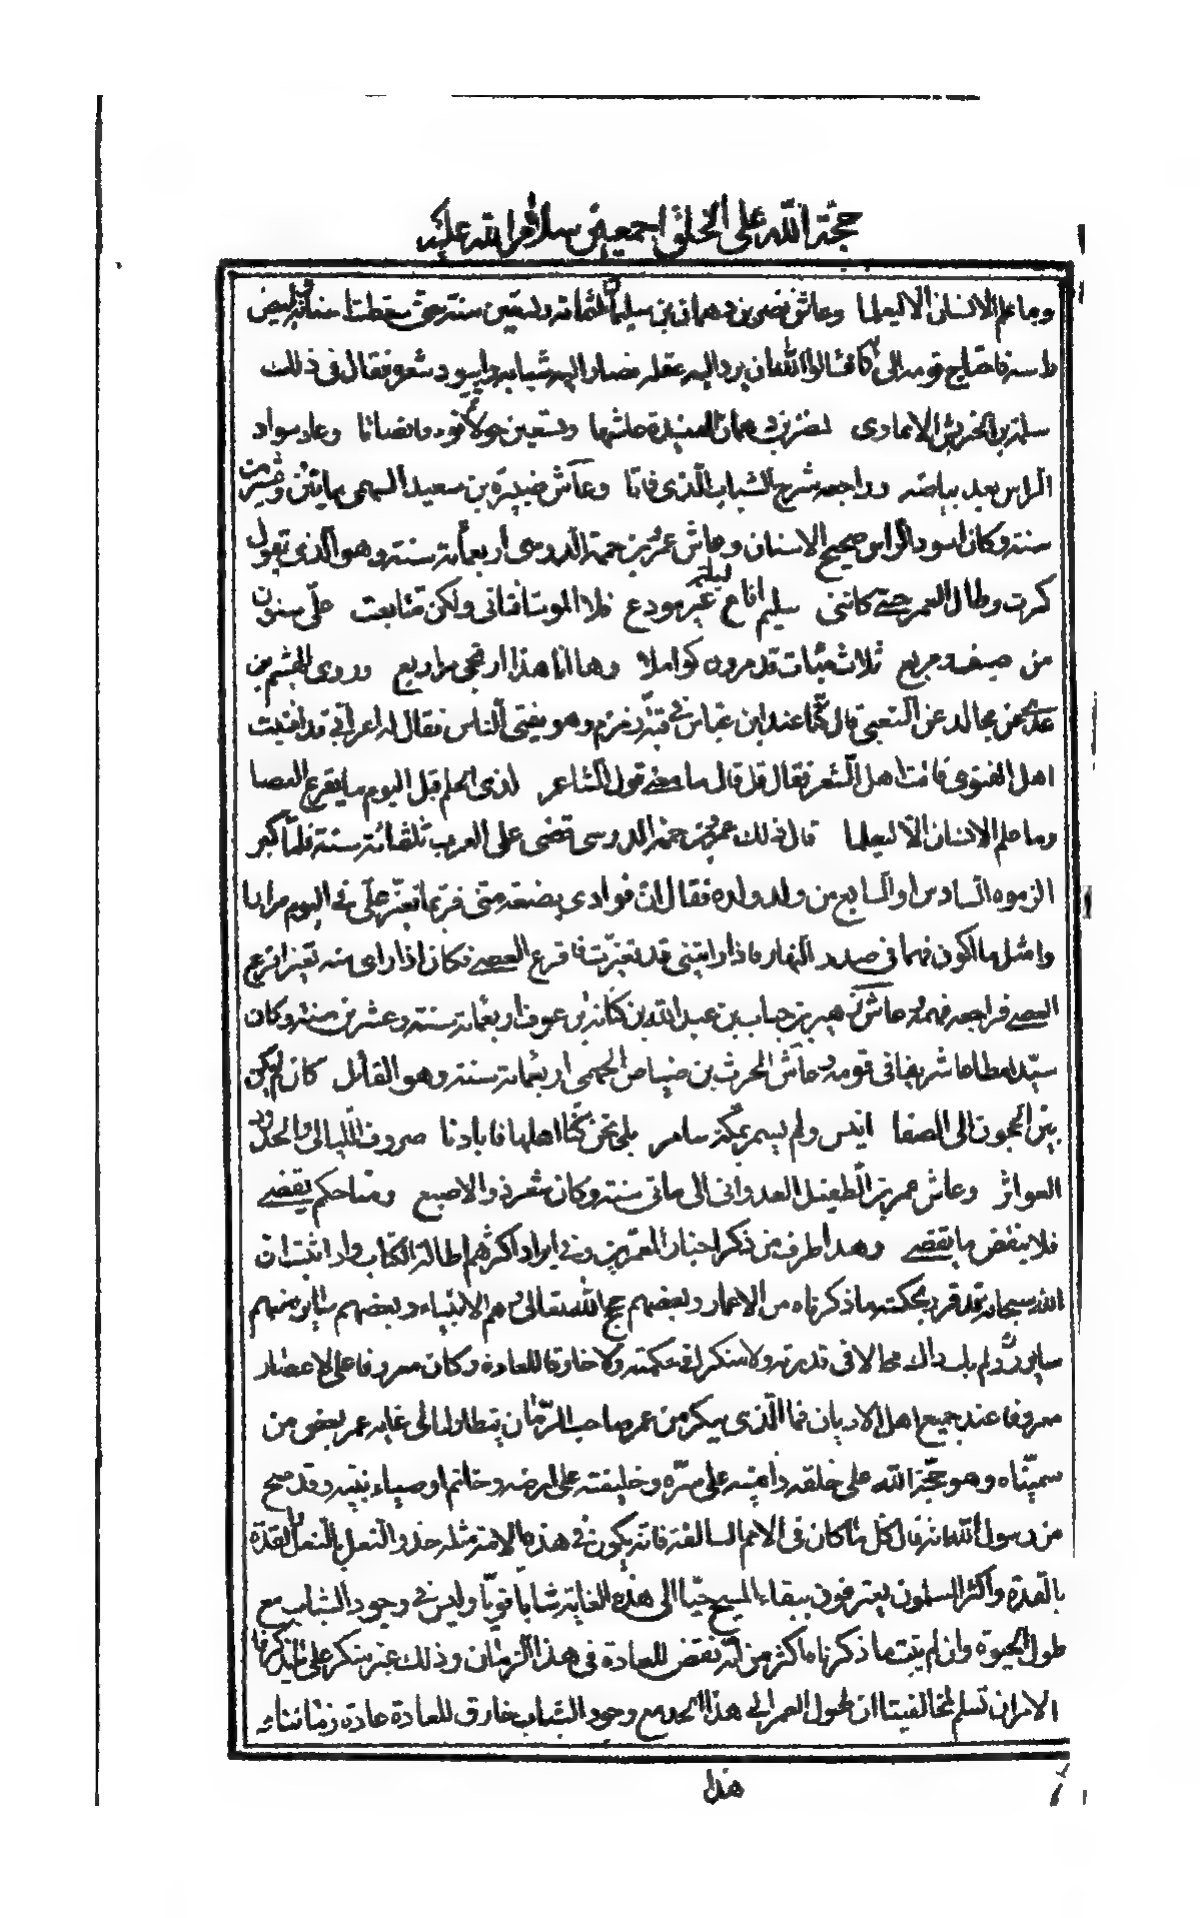 حجة الله على الخلق اجمعين سلام الله عليه
وما علم الانسان الا ليعلما وعاش نصر بن دهمان بن سليم ثلثمائة وتسعين سنة حتى سقطت اسنانه وابيض
راسه فاحتاج قومه الى رايه فسالوا الله ان يرد اليه عقله فصار اليه شبابه واسود شعره فقال في ذلك
سلمة بن الخرشب الانمارى لنضر بن دهمان الهنيدة عاشها وتسعين حولا ثم قوم فانصاتا وعاد سواد
الراس بعد بياضه وراجعه شرخ الشباب الذى فاتا وعاش ضبيرة بن سعيد السهمى مايتين وعشرين
سنة وكان اسود الراس صحيح الاسنان وعاش عمر بن حممة الدوسى اربعمائة سنة وهو الذى يقول
كبرت وطال العمر حتى كاننى سليم افاع ليله غير مودع فلا الموت افنانى ولكن تتابعت على سنون
من صيف ومربع ثلاث مئات قد مررن كواملا وها انا هذا ارتجى مر اربع وروى الهيثم بن
عدى عن مجالد عن الشعبى قال كنا عند ابن عباس في قبة زمزم وهو يفتى الناس فقال له اعرابى قد افتيت
اهل الفتوى فافت اهل الشعر فقال قل قال ما معنى قول الشاعر لذى الحلم قبل اليوم ما يقرع العصا
وما علم الانسان الا ليعلما قال ذلك عمرو بن حممة الدوسى قضى على العرب ثلثمائة سنة فلما كبر
الزموه السادس او السابع من ولد ولده فقال ان فوادى بضعة منى فربما تغير على في اليوم مرارا
وامثل ما اكون فهما فى صدر النهار فاذا رايتنى قد تغيرت فاقرع العصى فكان اذا راى منه تغيرا قرع
العصى فراجعه فهمه وعاش زهير بن جباب بن عبد الله بن كنانة بن عوف اربعمائة سنة وعشرين سنة وكان
سيدا مطاعا شريفا فى قومه وعاش الحرث بن مضاض الجرهمى اربعمائة سنة وهو القائل كان لم يكن
بين الحجون الى الصفا انيس ولم يسمر بمكة سامر بلى نحن كنا اهلها فابادنا صروف الليالى والجدود
العواثر وعاش عمر بن الطفيل العدوانى الى مائتى سنة وكان شعر ذو الاصبع ومنا حكم يقضى
فلا ينقض ما يقضى وهذا طرف من ذكر اخبار المعمرين وفي ايراد اكثرهم اطالة الكتاب واذا ثبت ان
الله سبحانه قد قرر بحكمته ما ذكرناه من الاعمار وبعضهم حجج الله تعالى وهم الانبياء وبعضهم منهم
ولم يك ذلك محالا فى قدرته ولا منكرا في حكمته ولا خارقا للعادة وكان معروفا على الاعصار
معروفا عند جميع اهل الاديان فما الذى ينكر من عمر صاحب الزمان يتطاول الى غاية عمر بعض من
سميناه وهو حجة الله على خلقه وامينه على سره وخليفته على ارضه وخاتم اوصياء نبيه وقد صح
من رسول الله انه قال كل ما كان فى الامم السالفة فانه يكون في هذه الامة مثله حذو النعل بالنعل والقذة
بالقذة واكثر المسلمون يعترفون ببقاء المسيح حيا الى هذه الغاية شابا قويا وليس في وجود الشباب مع
طول الحيوة وان لم يثبت ما ذكرناه اكثر من انه نقض للعادة فى هذا الزمان وذلك غير منكر على ما يذكرنا
الامر ان نسلم لمخالفينا ان طول العمر الى هذا الحد مع وجود الشباب خارق للعادة عادة زماننا
هذا